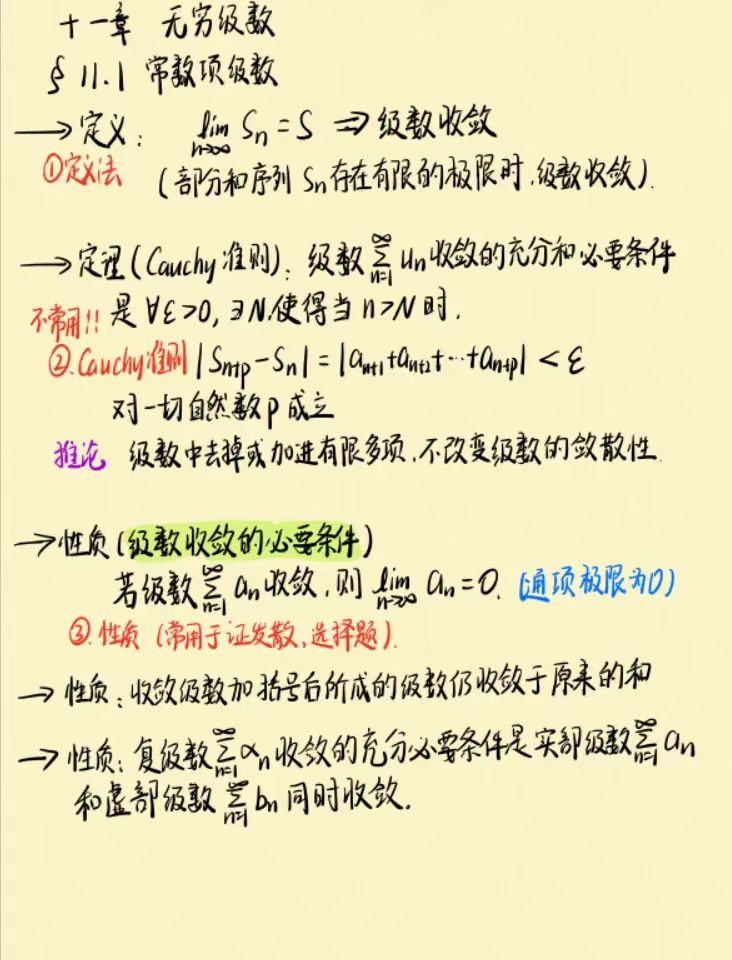 十一章 无穷级数
§ 11.1 常数项级数
→定义： lim n→∞ Sn = S ⇒ 级数收敛
①定义法 (部分和序列 Sn 存在有限的极限时,级数收敛).
→定理(Cauchy准则)：级数 ∑ n=1 ∞ un 收敛的充分和必要条件
不常用!! 是 ∀ε>0, ∃N,使得当 n>N 时,
②.Cauchy准则 |Sn+p-Sn| = |an+1+an+2+…+an+p| < ε
对一切自然数p成立
推论 级数中去掉或加进有限多项,不改变级数的敛散性.
→性质(级数收敛的必要条件)
若级数 ∑ n=1 ∞ an 收敛,则 lim n→∞ an=0. (通项极限为0)
③.性质 (常用于证发散,选择题).
→性质：收敛级数加括号后所成的级数仍收敛于原来的和
→性质：复级数 ∑ n=1 ∞ αn 收敛的充分必要条件是实部级数 ∑ n=1 ∞ an
和虚部级数 ∑ n=1 ∞ bn 同时收敛.